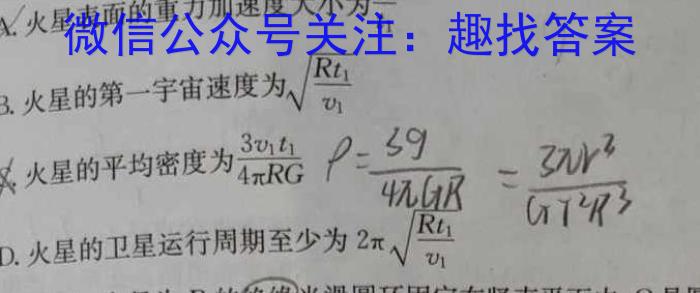 A. 火星表面的重力加速度大小为
微信公众号关注：趣找答案
B. 火星的第一宇宙速度为√(Rt₁/v₁)
火星的平均密度为3v₁t₁/4πRG ρ = 3g/4πGR = 3πr³/GT²R³
D. 火星的卫星运行周期至少为 2π√(Rt₁/v₁)